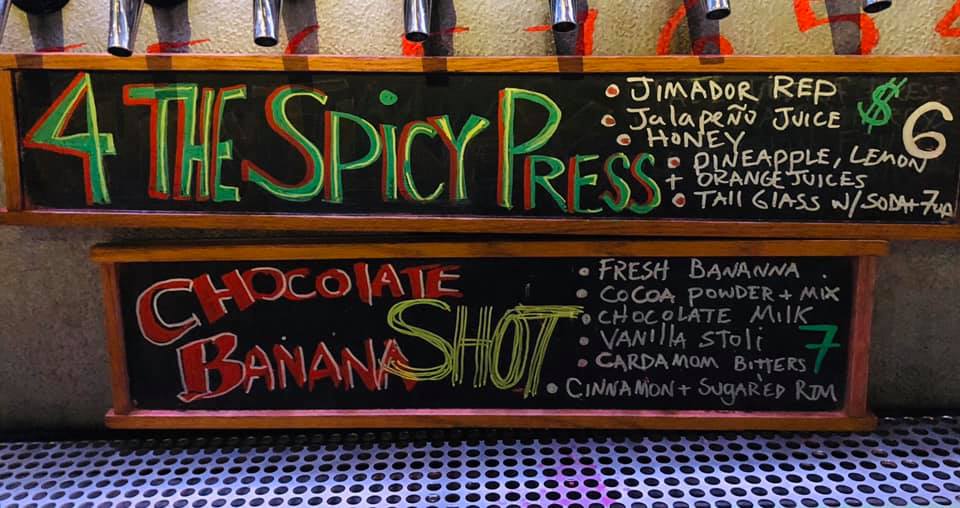 4 THE SPICY PRESS
• JIMADOR REP
• JalAPEÑO JUICE
• HONEY
• PINEAPPLE, LEMON
+ ORANGE JUICES
• TAll GlASS W/ SODA+7UP
$6
CHOCOlATE
BANANA SHOT
• FRESH BANANNA
• COCOA POWDER + MIX
• CHOCOLATE MIlK
• VANIllA STOlI
• CARDAMOM BITTERS
• CINNAMON + SUGAR'ED RIM
7